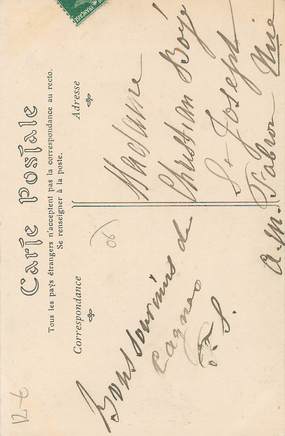 Carte Postale
Tous les pays étrangers n'acceptent pas la correspondance au recto.
Se renseigner à la poste.
Correspondance
Adresse
Bons souvenirs de
Cagnes
S.
Madame
Christian Boyé
St Joseph
Fabron Nice
A. M.
06
12-6